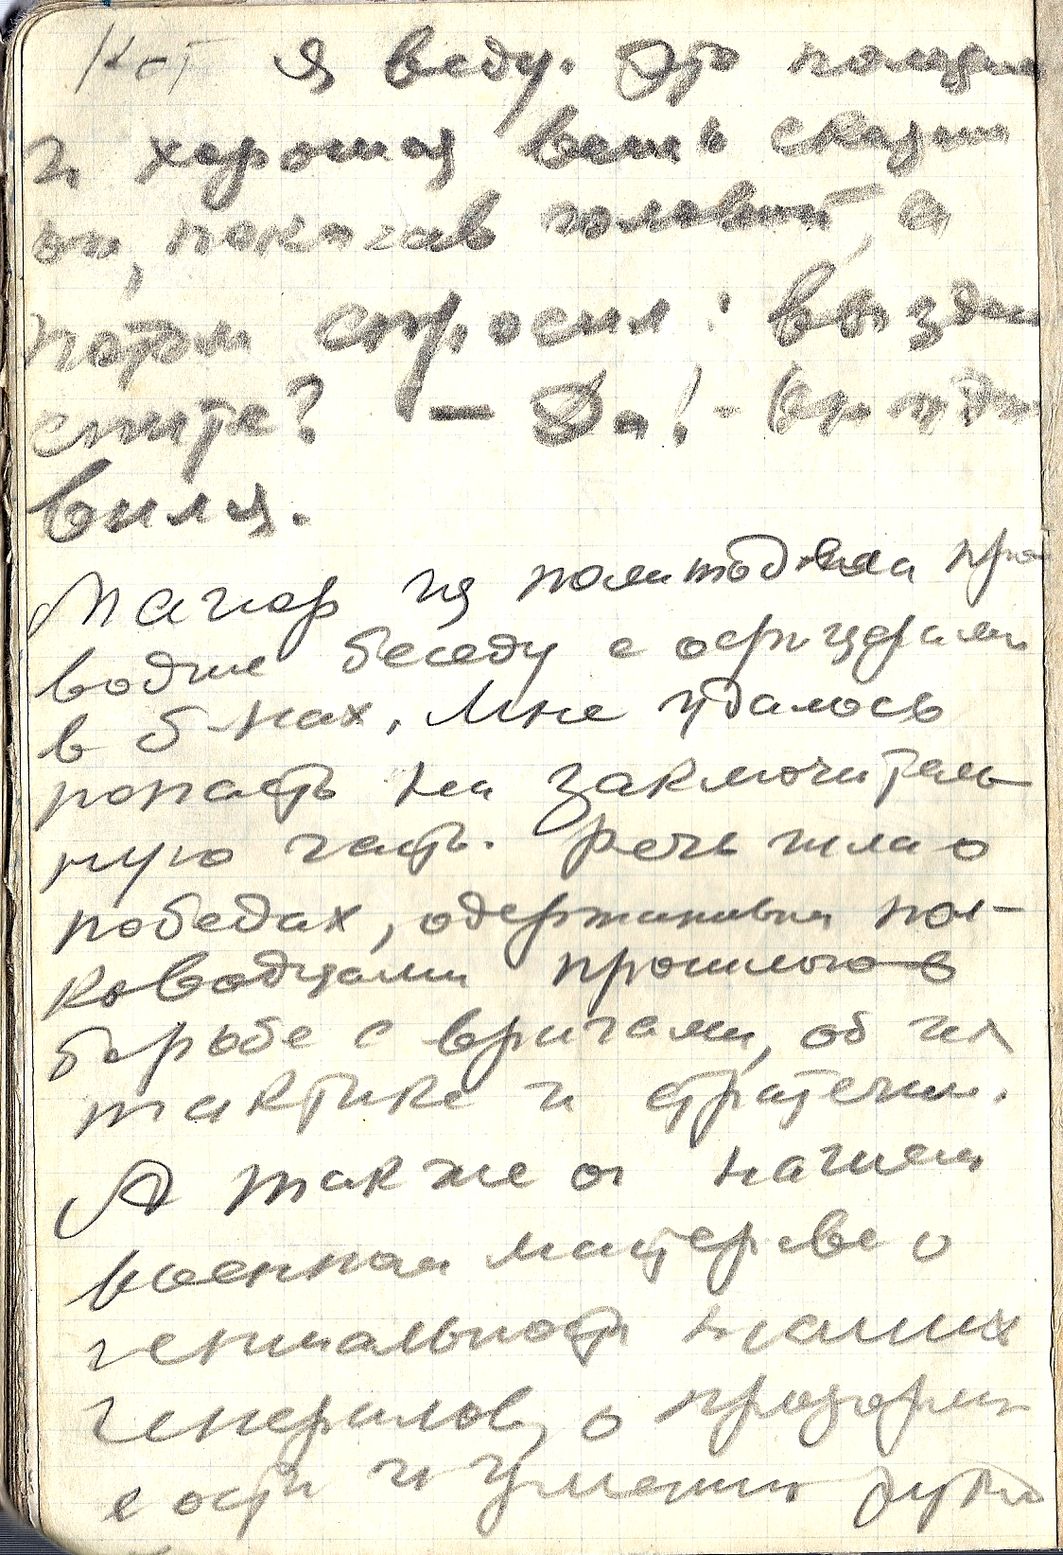 я веду. Это полезная
и хорошая вещь сказал
он, покачав головой, а
потом спросил: вы здесь
спите? – Да! –
вился.
Маиор из политотдела про
водил беседу с офицерами
в б-нах. Мне удалось
попасть на заключитель
ную часть. Речь шла о
победах, одержанных пол-
ководцами прошлого в
борьбе с врагами, об их
тактике и стратегии.
А также о нашем
военном мастерстве о
гениальности наших
генералов, о прозорлив
ости и умении